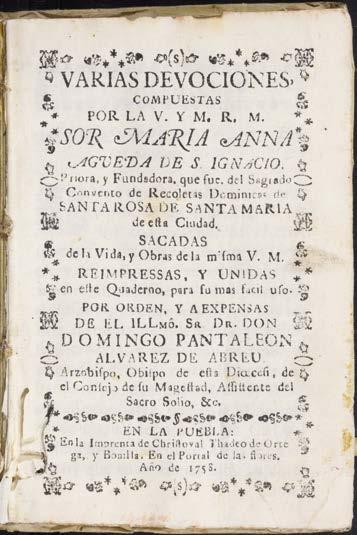 (S)
VARIAS DEVOCIONES,
COMPUESTAS
POR LA V. Y M. R. M.
SOR MARIA ANNA
AGUEDA DE S. IGNACIO,
Priora, y Fundadora, que fue, del Sagrado
Convento de Recoletas Dominicas de
SANTA ROSA DE SANTA MARIA
de esta Ciudad.
SACADAS
de la Vida, y Obras de la misma V. M.
REIMPRESSAS, Y UNIDAS
en este Quaderno, para su mas facil uso.
POR ORDEN, Y A EXPENSAS
DE EL ILLmô. SR. DR. DON
DOMINGO PANTALEON
ALVAREZ DE ABREU
Arzobispo, Obispo de esta Diœcesi, de
el Consejo de su Magestad, Assistente del
Sacro Solio, &c.
EN LA PUEBLA:
En la Imprenta de Christoval Thadeo de Orte
ga, y Bonilla. En el Portal de las flores.
Año de 1758.
(S)